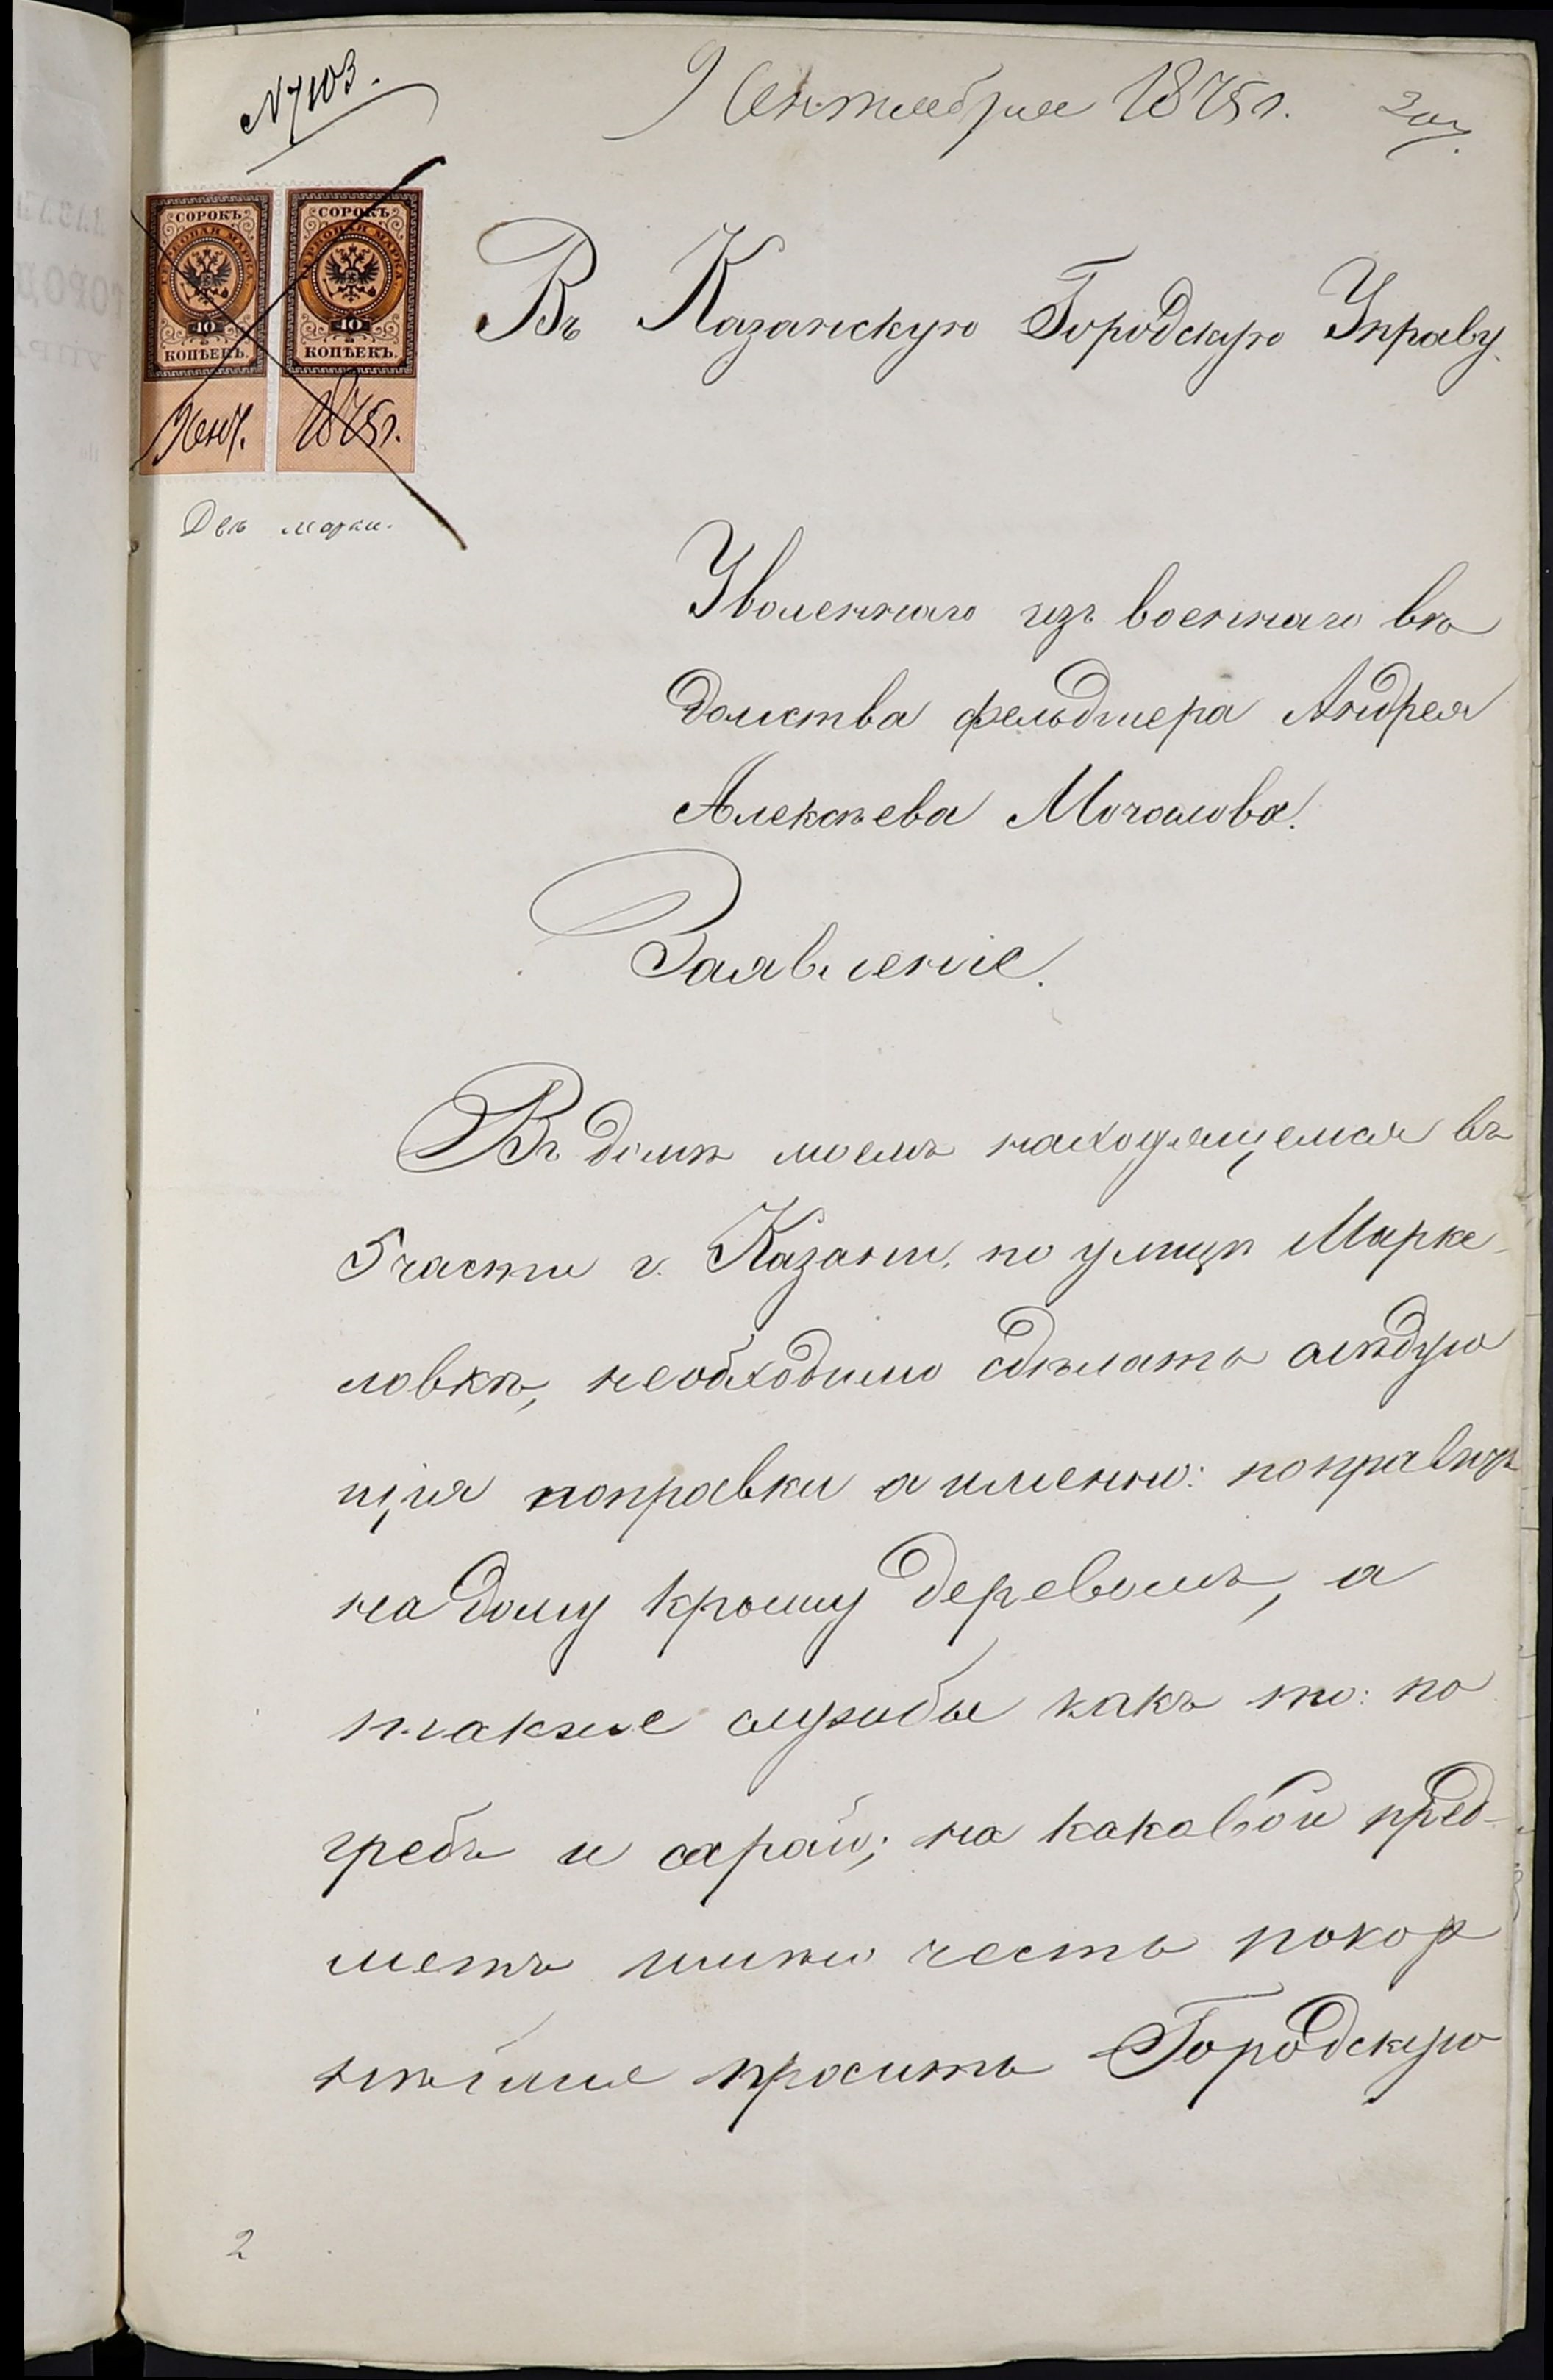 N 7103.
9 Сентября 1875 г.
СОРОКЪ СОРОКЪ
ГЕРБОВАЯ МАРКА ГЕРБОВАЯ МАРКА
40 40
КОПѢЕКЪ. КОПѢЕКЪ.
9 Сент. 1875 г.
Двѣ марки.
Въ Казанскую Городскую Управу
Уволеннаго изъ военнаго вѣ
домства фельдшера Андрея
Алексѣева Мочалова.
Заявленіе.
Въ домѣ моемъ находящемся въ
5 части г. Казани, по улицѣ Марке
ловкѣ, необходимо сдѣлать слѣдую
щія поправки а именно: поправить
на дому крышу деревомъ, а
также службы какъ то: по
гребъ и сарай; на каковой пред-
метъ имѣю честь покор
нѣйше просить Городскую
2